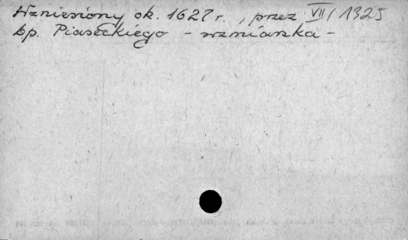 Wzniesiony ok. 1627 r., przez VII/1325
bp. Piaseckiego - wzmianka -